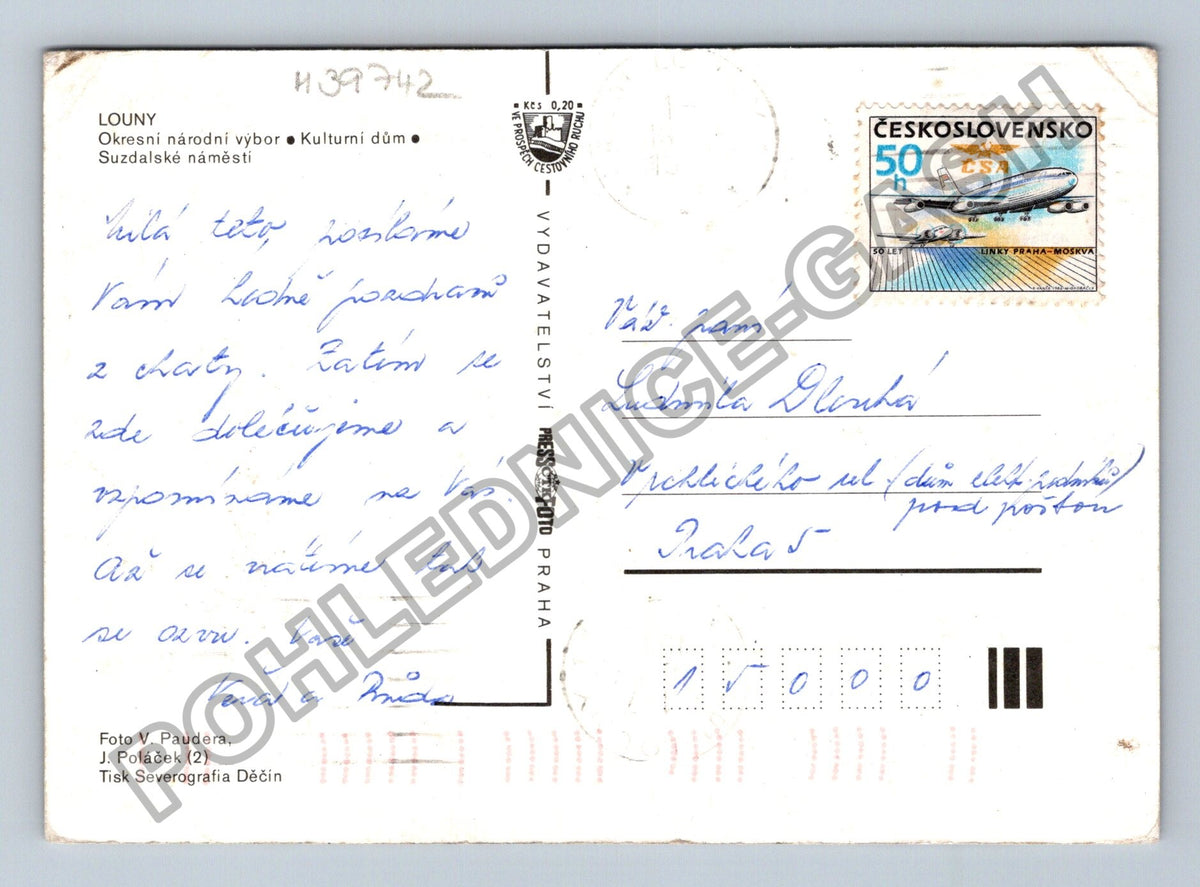 H39742
LOUNY
Okresní národní výbor • Kulturní dům •
Suzdalské náměstí
Milá teto, posíláme
Vám hodně pozdravů
z chaty. Zatím se
zde doléčujeme a
vzpomínáme na Vás.
Až se vrátíme tak
se ozvu. Vaši
Věra a
Foto V. Paudera,
J. Poláček (2)
Tisk Severografia Děčín
Kčs 0,20
VE PROSPĚCH CESTOVNÍHO RUCHU
VYDAVATELSTVÍ PRESSFOTO PRAHA
ČTK
ČESKOSLOVENSKO
50 h
ČSA
50 LET LINKY PRAHA–MOSKVA
Váž. paní
Ludmila Dlouhá
Vrchlického ul (dům elektr. podniků)
pod poštou
Praha 5
15000
POHLEDNICE-GASH